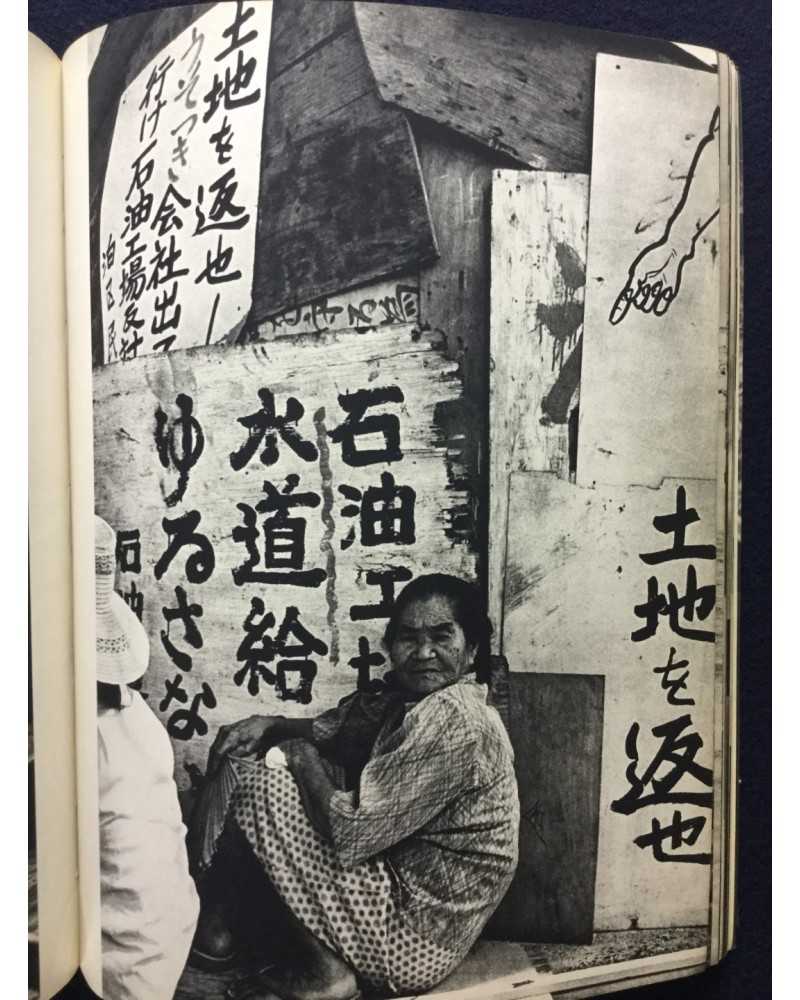 土地を返せー
うそつき会社出て
行け石油工場反対
泊区民
石油工場
水道給
ゆるさな
石油
土地を返せ